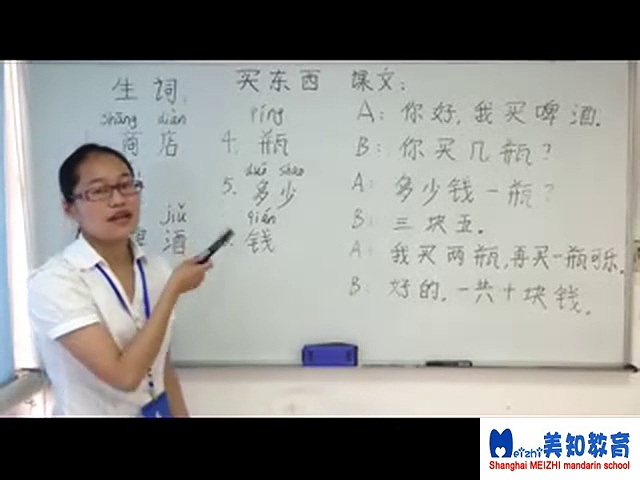 买东西
生词:
shāng diàn
商店
jiǔ
啤酒
píng
4. 瓶
duō shao
5. 多少
qián
钱
课文:
A: 你好,我买啤酒.
B: 你买几瓶?
A: 多少钱一瓶?
B: 三块五.
A: 我买两瓶,再买一瓶可乐.
B: 好的,一共十块钱.
Meizhi 美知教育
Shanghai MEIZHI mandarin school